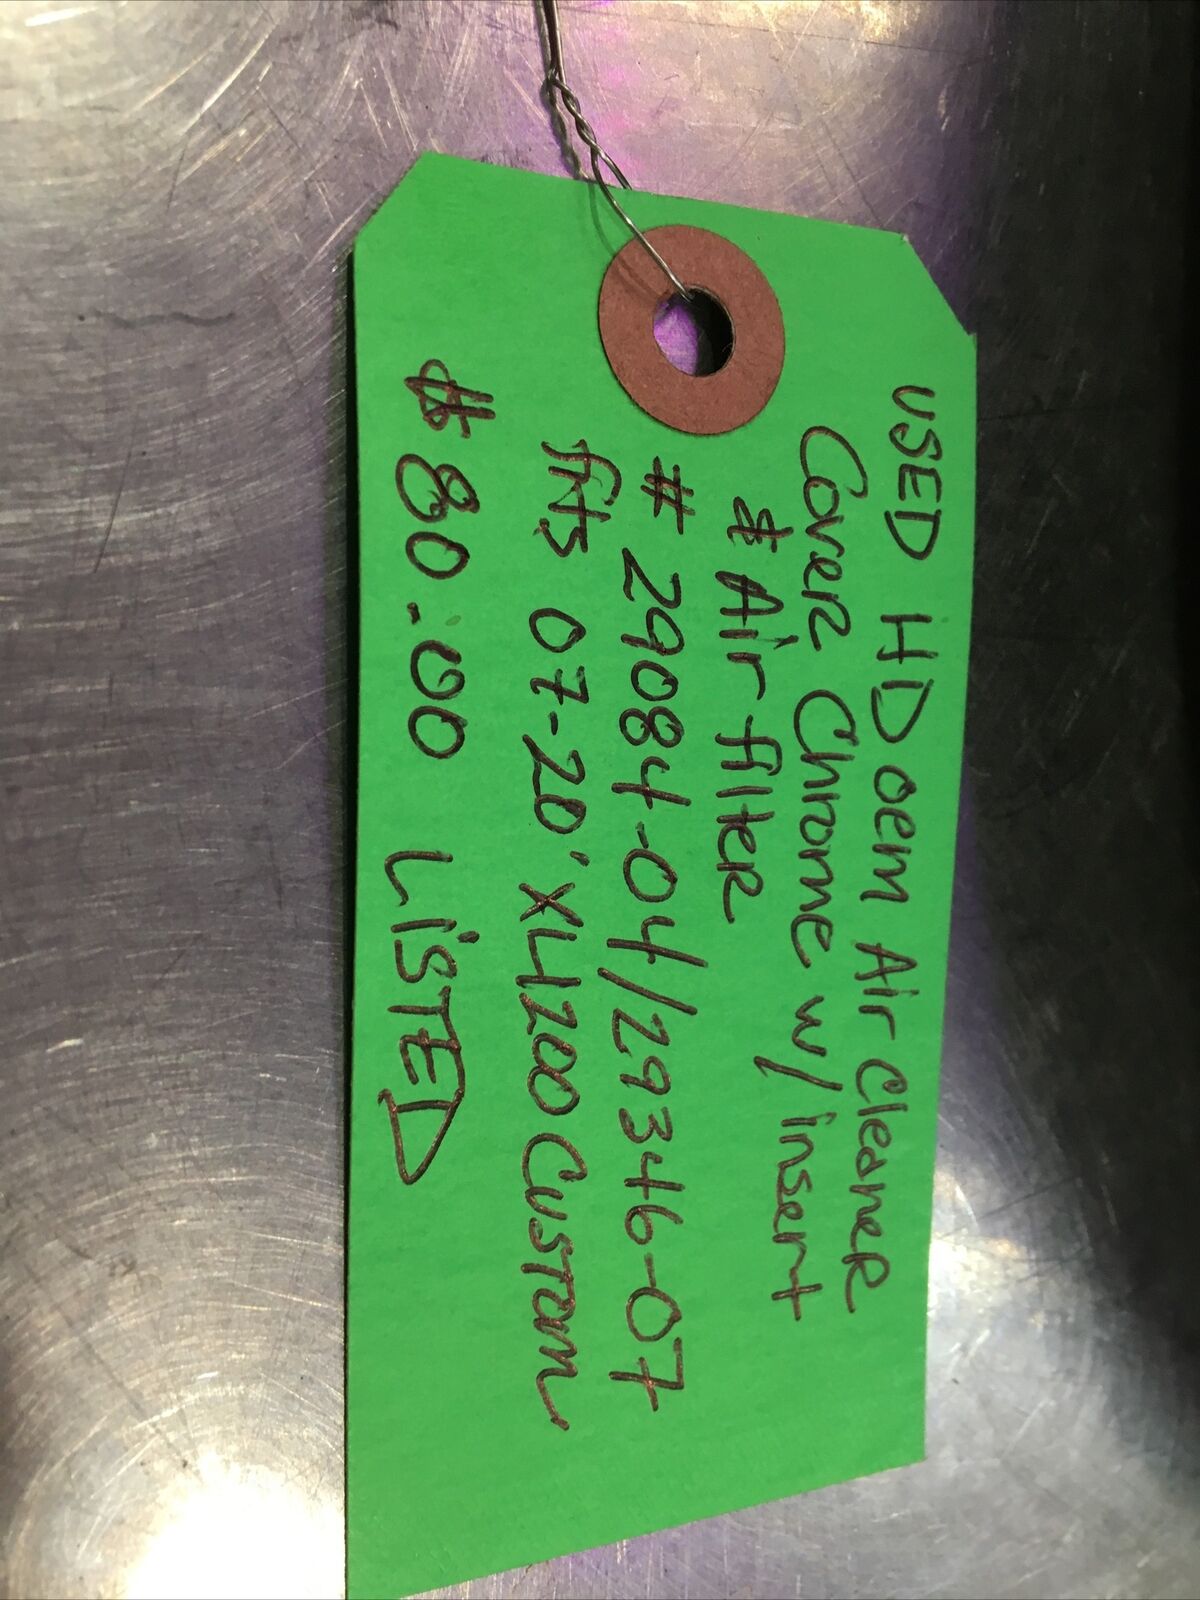 USED HD OEM Air Cleaner
Cover Chrome w/ insert
& Air filter
# 29084-04/29346-07
fits 07-20' XL1200 Custom
$80.00 LiSTED